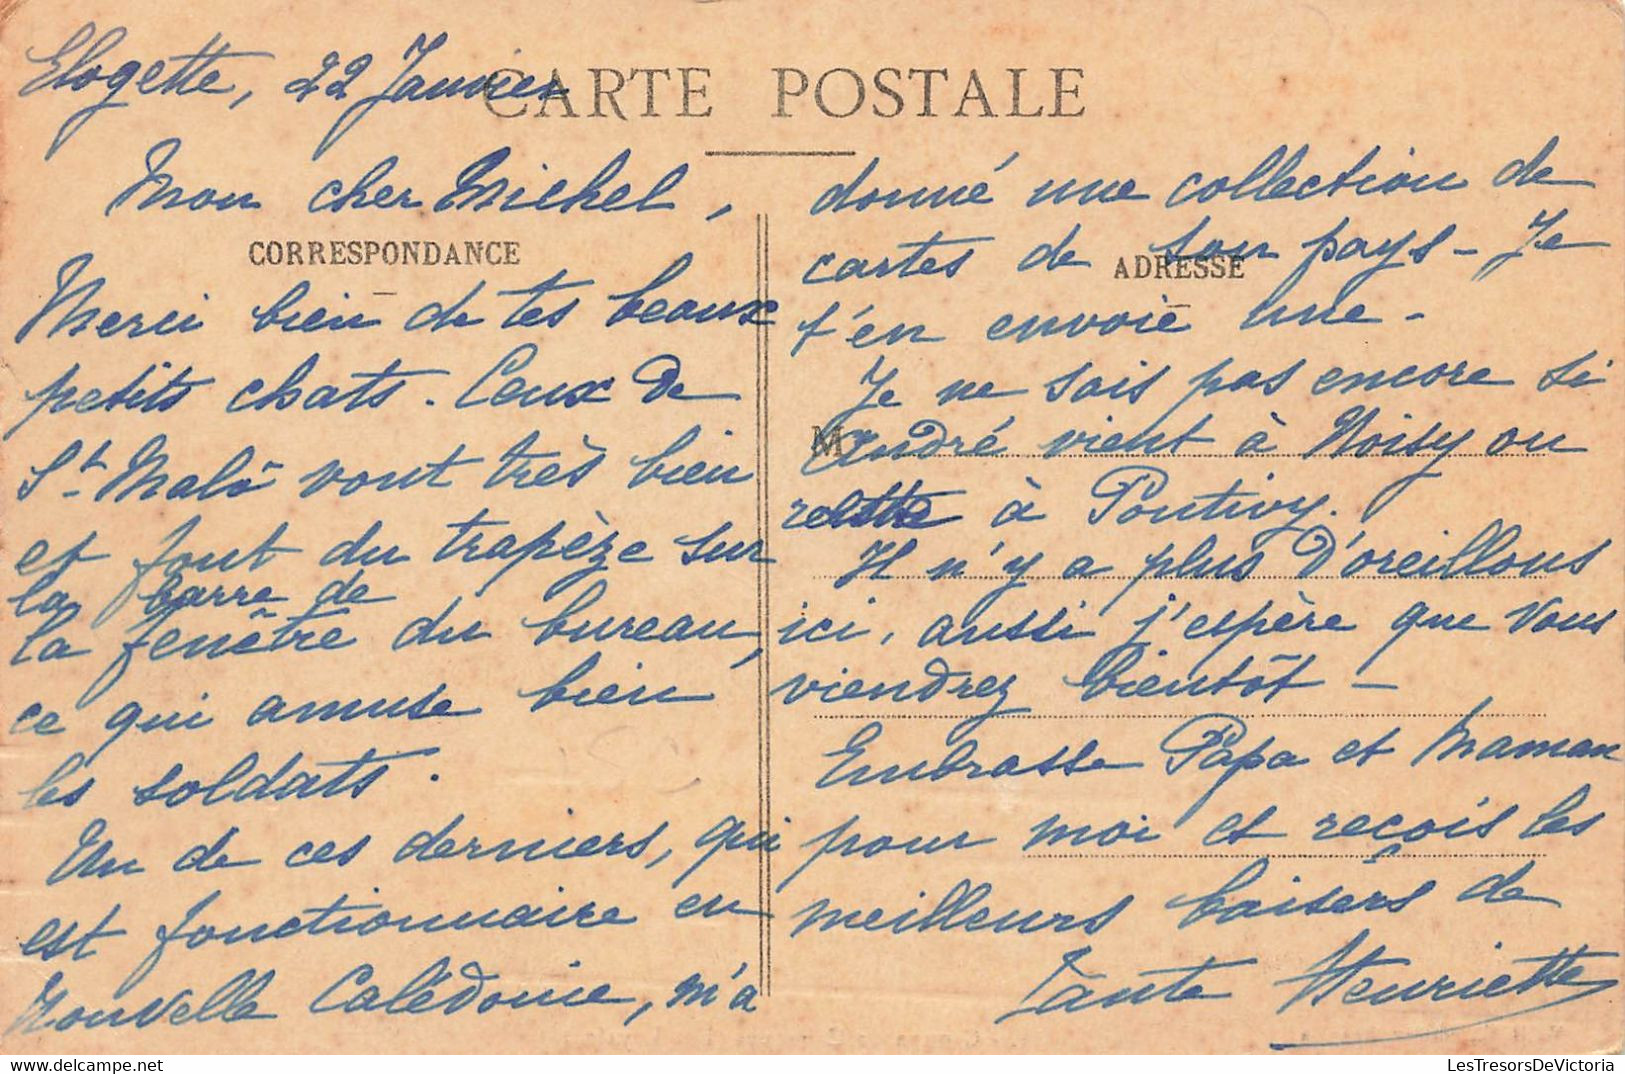 Elogette, 22 Janvier
CARTE POSTALE
Mon cher Michel,
CORRESPONDANCE
Merci bien de tes beaux
petits chats. Ceux de
St Malô vont très bien
et font du trapèze sur
la barre de
la fenêtre du bureau,
ce qui amuse bien
les soldats.
Un de ces derniers, qui
est fonctionnaire en
Nouvelle Calédonie, m'a
donné une collection de
cartes de son pays - Je
ADRESSE
t'en envoie une -
Je ne sais pas encore si
M
André vient à Noisy ou
reste à Pontivy.
Il n'y a plus d'oreillons
ici, aussi j'espère que vous
viendrez bientôt -
Embrasse Papa et Maman
pour moi et reçois les
meilleurs baisers de
Tante Henriette
LesTresorsDeVictoria